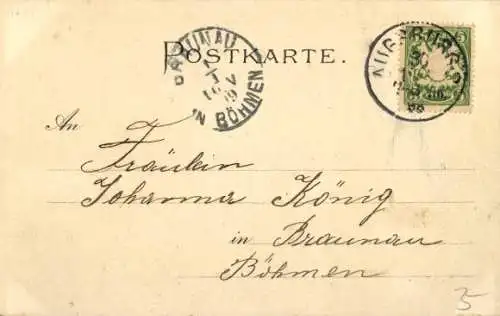 POSTKARTE.
BRAUNAU
IN BÖHMEN
AUGSBURG
An
Fräulein
Johanna König
in Braunau
Böhmen
5